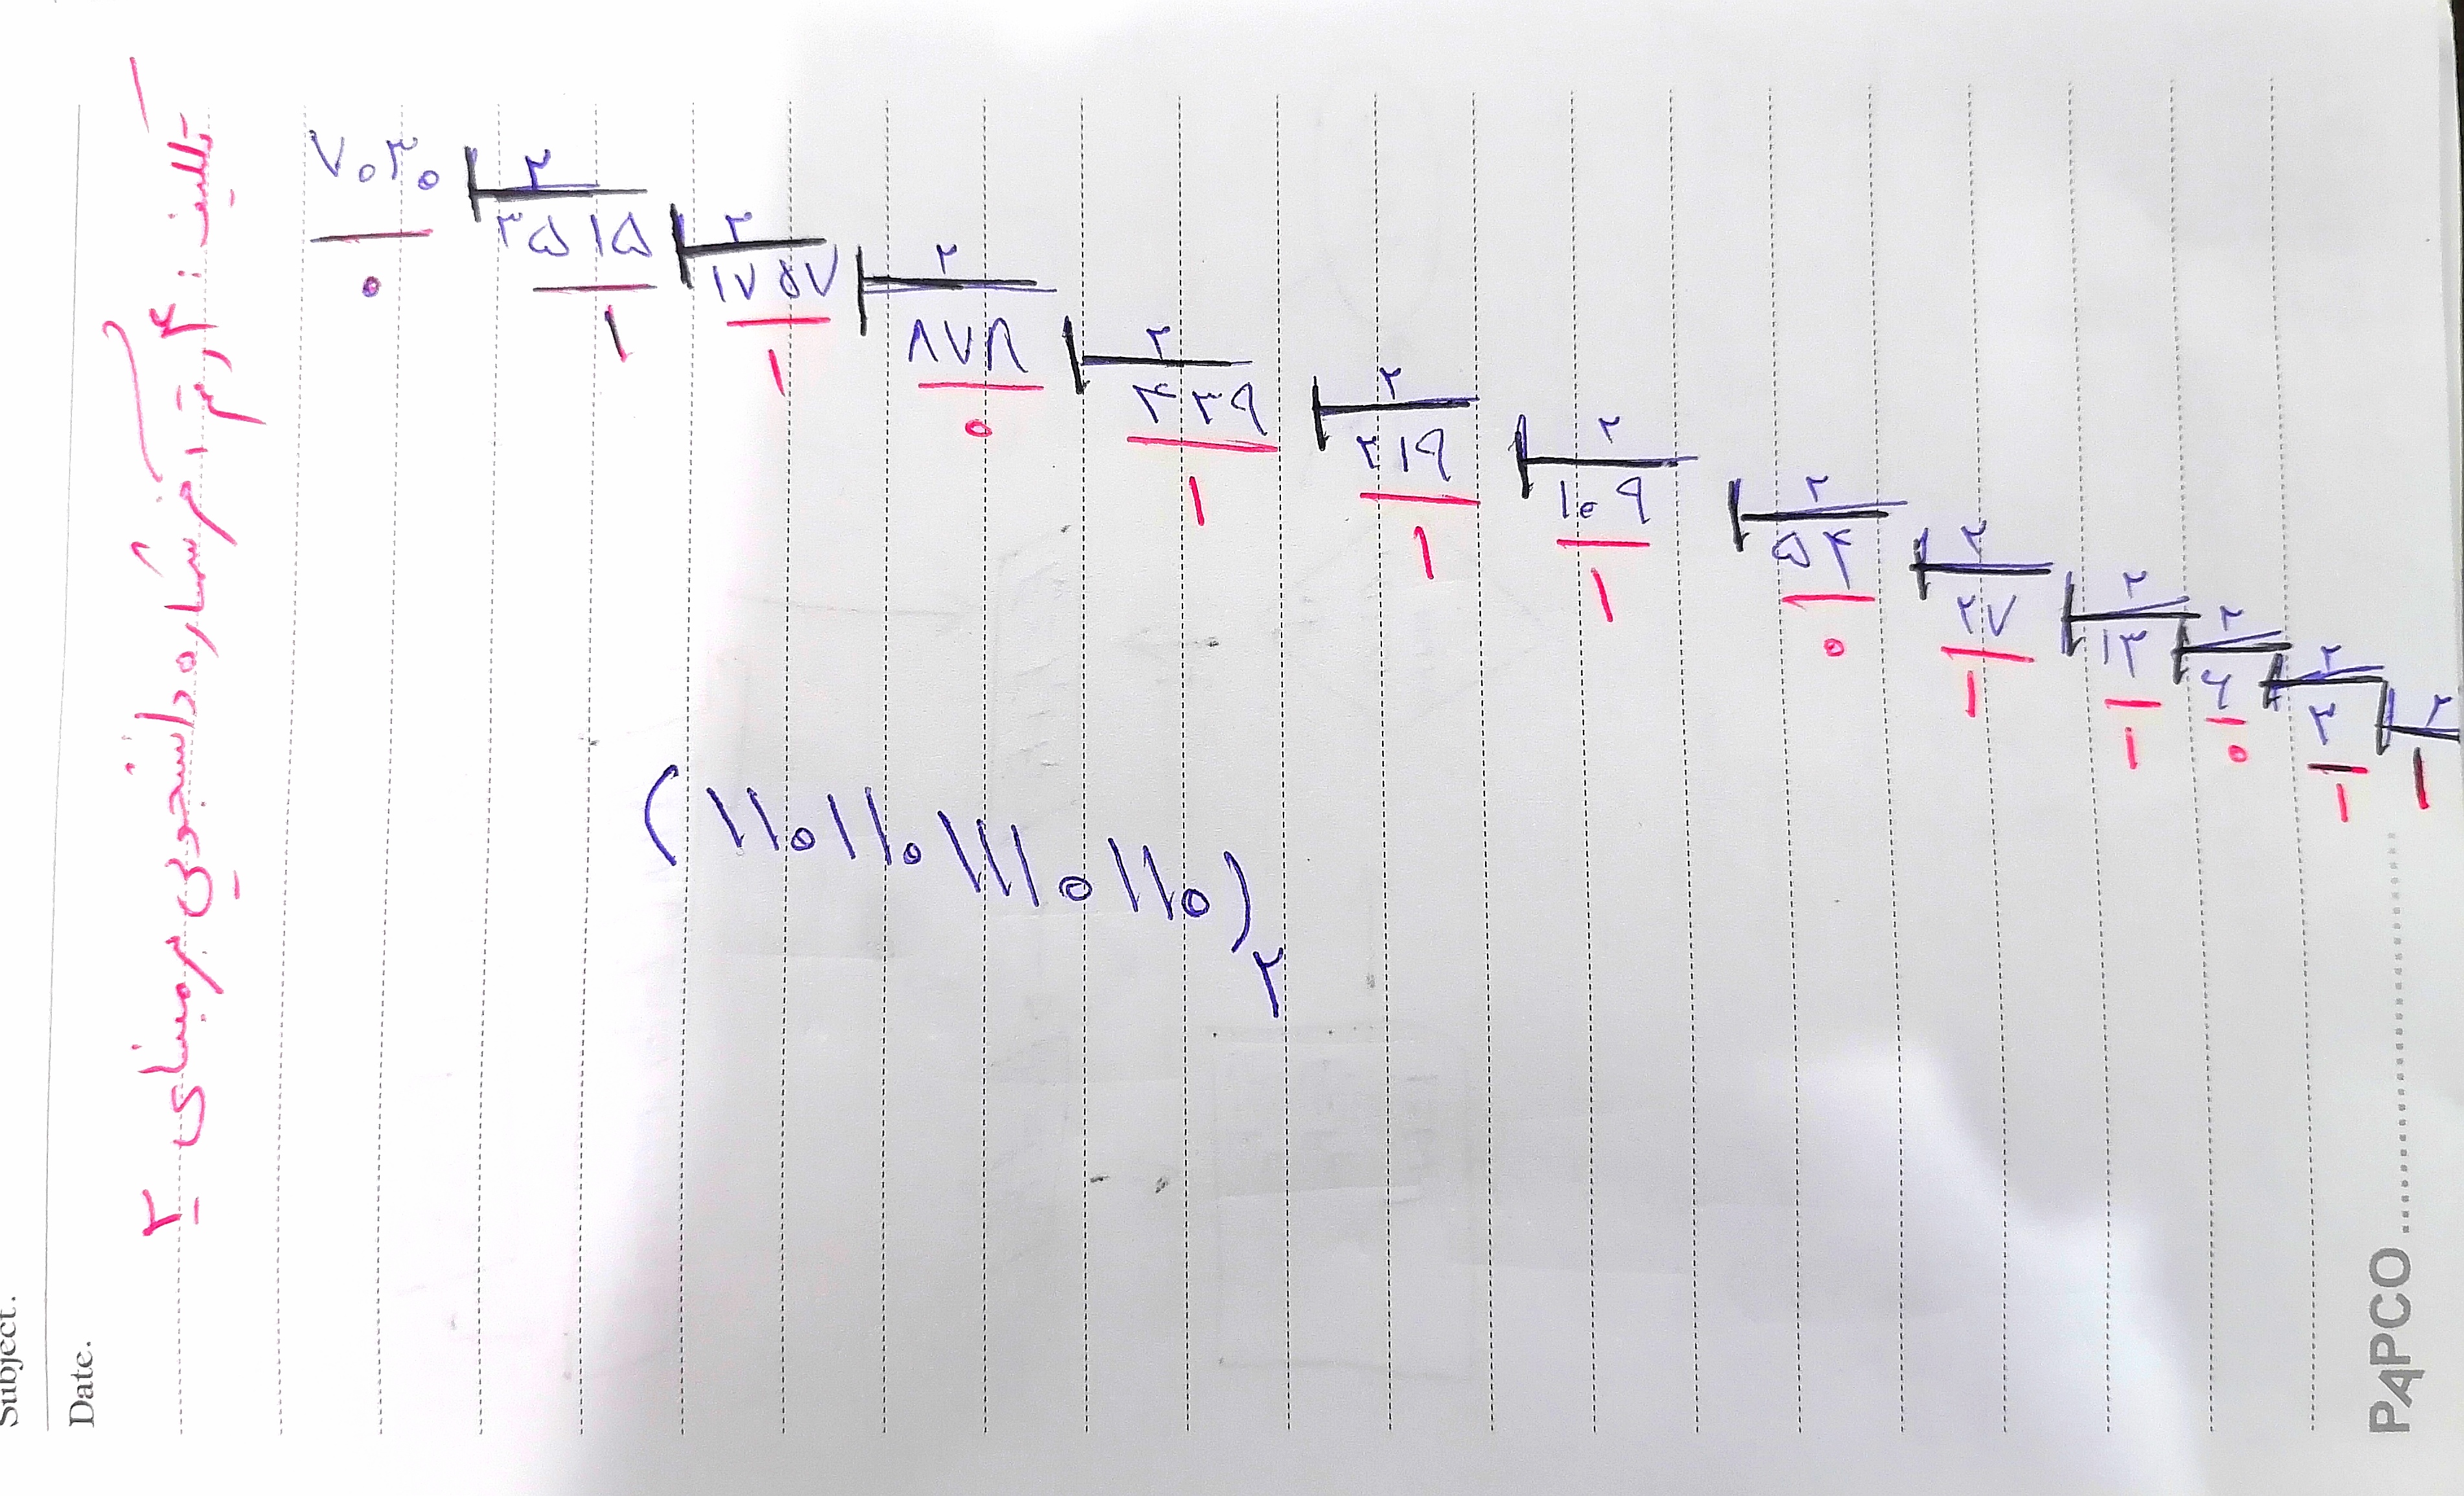 Subject.
Date.
تکلیف: ۴ رقم آخر شماره دانشجویی بر مبنای ۲
۷۰۳۰ ۲
۰
۳۵۱۵ ۲
۱
۱۷۵۷ ۲
۱
۸۷۸ ۲
۰
۴۳۹ ۲
۱
۲۱۹ ۲
۱
۱۰۹ ۲
۱
۵۴ ۲
۰
۲۷ ۲
۱
۱۳ ۲
۱
۶ ۲
۰
۳ ۲
۱
۱
(۱۱۰۱۱۰۱۱۱۰۱۱۰)۲
PAPCO